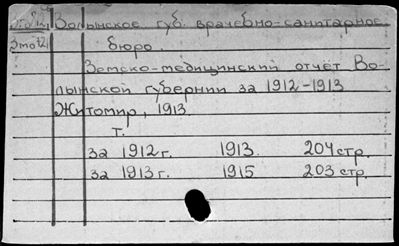 Волынское губ. врачебно-санитарное
бюро.
Земско-медицинский отчёт Во-
лынской губернии за 1912-1913
Житомир, 1913
т.
за 1912 г. 1913 204 стр.
за 1913 г. 1915 203 стр.